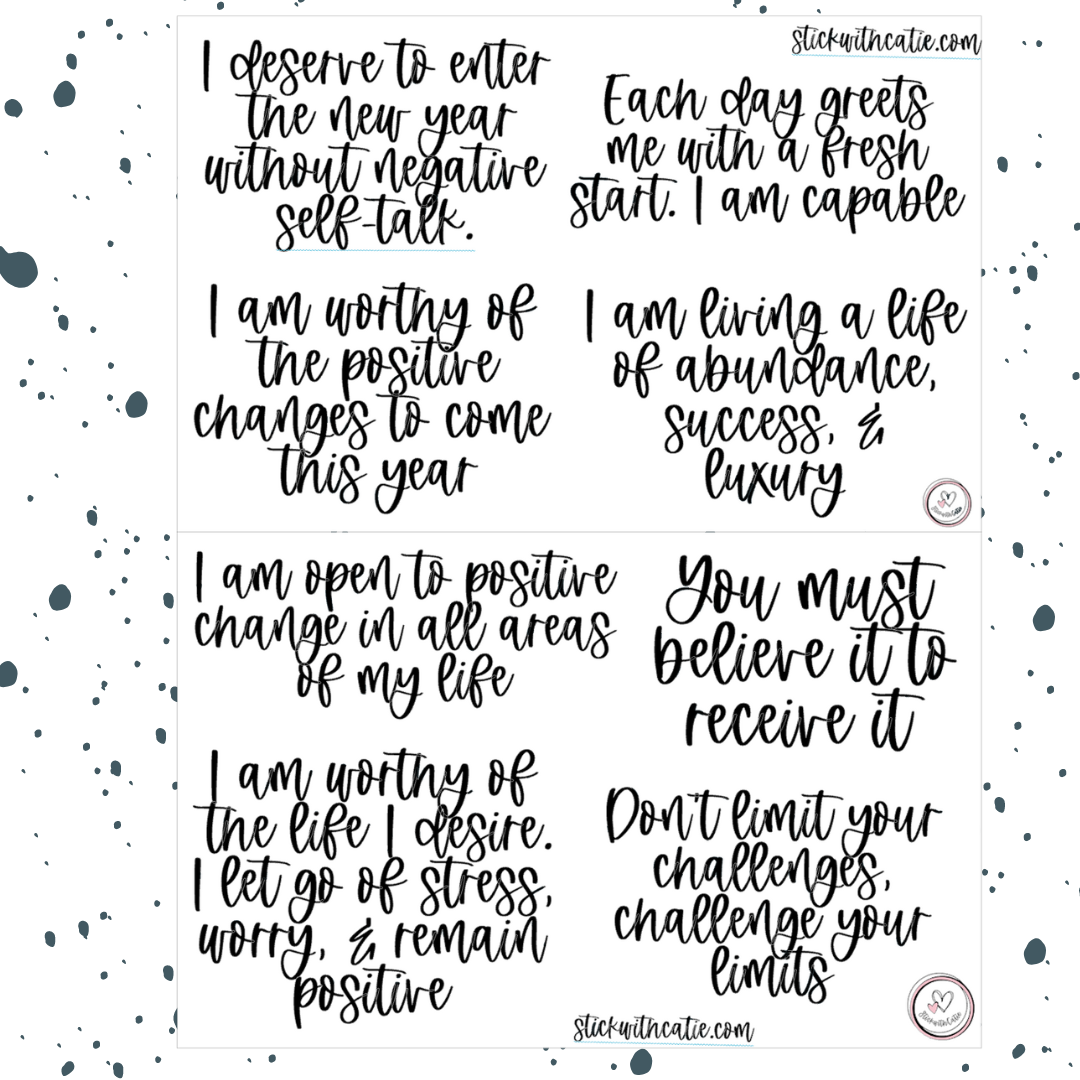 stickwithcatie.com
I deserve to enter
the new year
without negative
self-talk.
Each day greets
me with a fresh
start. I am capable
I am worthy of
the positive
changes to come
this year
I am living a life
of abundance,
success, &
luxury
StickwithCatie
I am open to positive
change in all areas
of my life
You must
believe it to
receive it
I am worthy of
the life I desire.
I let go of stress,
worry, & remain
positive
Don't limit your
challenges,
challenge your
limits
stickwithcatie.com
StickwithCatie